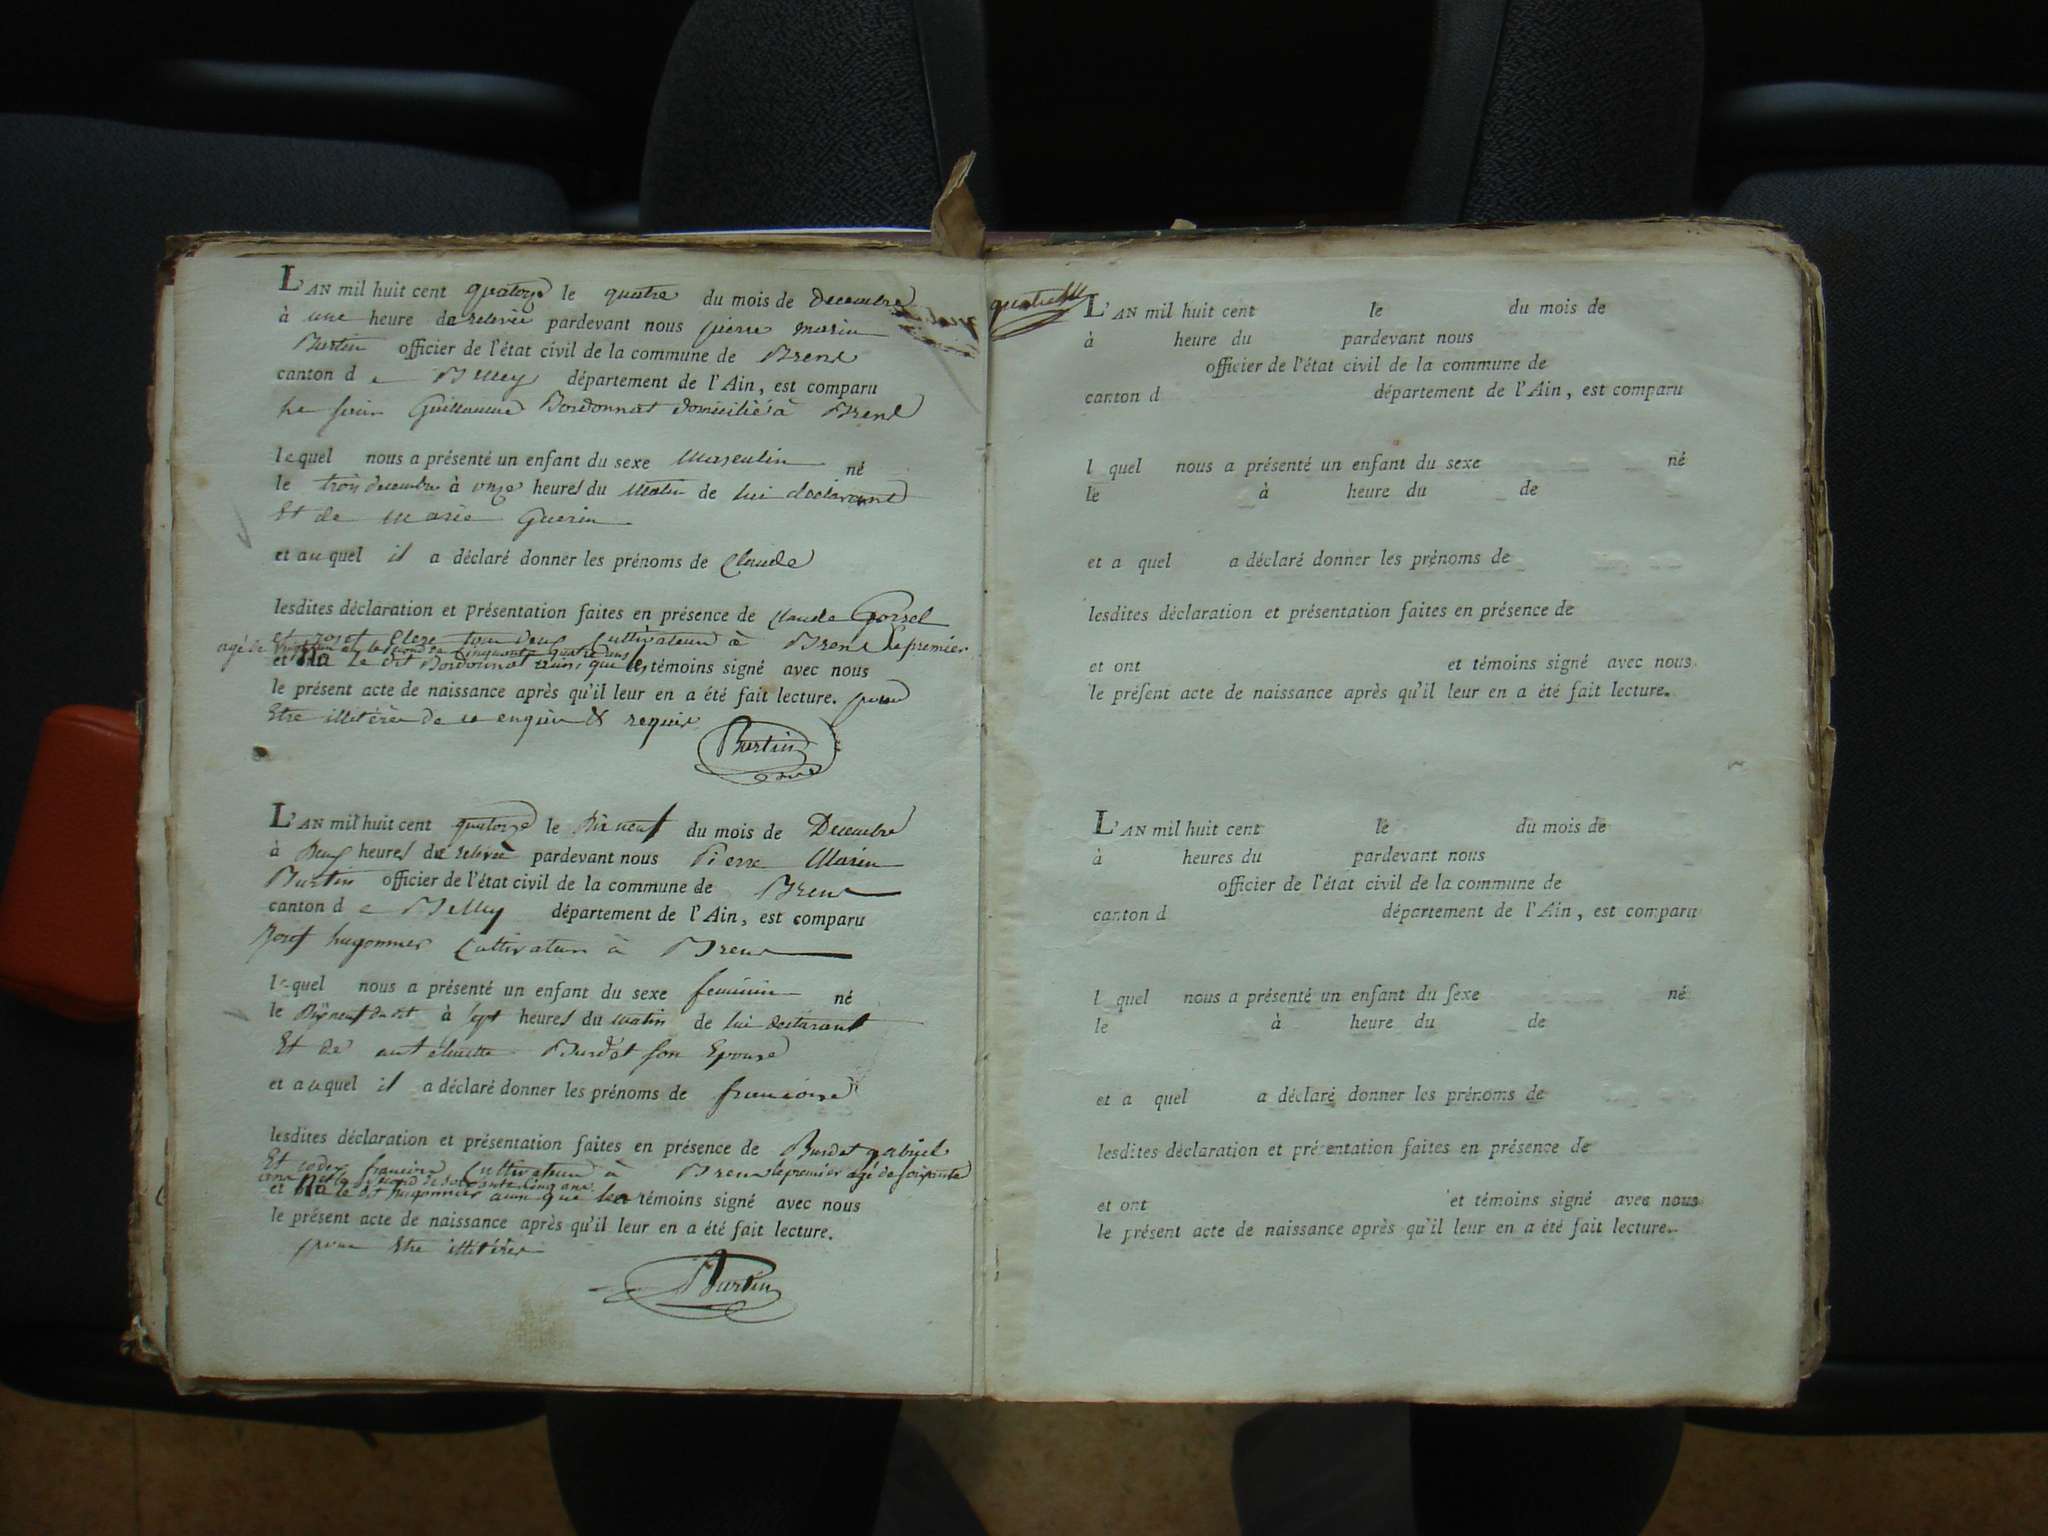 L'AN mil huit cent quatorze le quatre du mois de Decembre
à une heure de relevée pardevant nous pierre marin
Burtin officier de l'état civil de la commune de Brens
canton de Belley département de l'Ain, est comparu
Guillaume Bordonnat domicilié à Brens
lequel nous a présenté un enfant du sexe Masculin né
le trois decembre à onze heures du Matin de lui declarant
Et de Marie Guerin
et auquel il a déclaré donner les prénoms de Claude
lesdites déclaration et présentation faites en présence de Claude
et tous deux Cultivateurs à Brens le premier
agé de et le second de Cinquante quatre ans
et Na le dit Bordonnat ainsi que les témoins signé avec nous
le présent acte de naissance après qu'il leur en a été fait lecture. pour
Etre illitérés de ce enquis & requis
Burtin
L'AN mil huit cent quatorze le Dixneuf du mois de Decembre
à Deux heures de relevée pardevant nous Pierre Marin
Burtin officier de l'état civil de la commune de Brens
canton de Belley département de l'Ain, est comparu
Josef hugonnier Cultivateur à Brens
lequel nous a présenté un enfant du sexe feminin né
le Dixneuf du dit à sept heures du matin de lui declarant
Et de Burdet son Epouse
et auquel il a déclaré donner les prénoms de francoise
lesdites déclaration et présentation faites en présence de Burdet gabriel
Et Cultivateurs à Brens le premier agé de soixante
ans et le second de soixante cinq ans
et Na le dit hugonnier ainsi que les témoins signé avec nous
le présent acte de naissance après qu'il leur en a été fait lecture.
pour Etre illitérés
Burtin
L'AN mil huit cent le du mois de
à heure du pardevant nous
officier de l'état civil de la commune de
canton d département de l'Ain, est comparu
l quel nous a présenté un enfant du sexe né
le à heure du de
et a quel a déclaré donner les prénoms de
lesdites déclaration et présentation faites en présence de
et ont et témoins signé avec nous
le présent acte de naissance après qu'il leur en a été fait lecture.
L'AN mil huit cent le du mois de
à heures du pardevant nous
officier de l'état civil de la commune de
canton d département de l'Ain, est comparu
l quel nous a présenté un enfant du sexe né
le à heure du de
et a quel a déclaré donner les prénoms de
lesdites déclaration et présentation faites en présence de
et ont et témoins signé avec nous
le présent acte de naissance après qu'il leur en a été fait lecture.